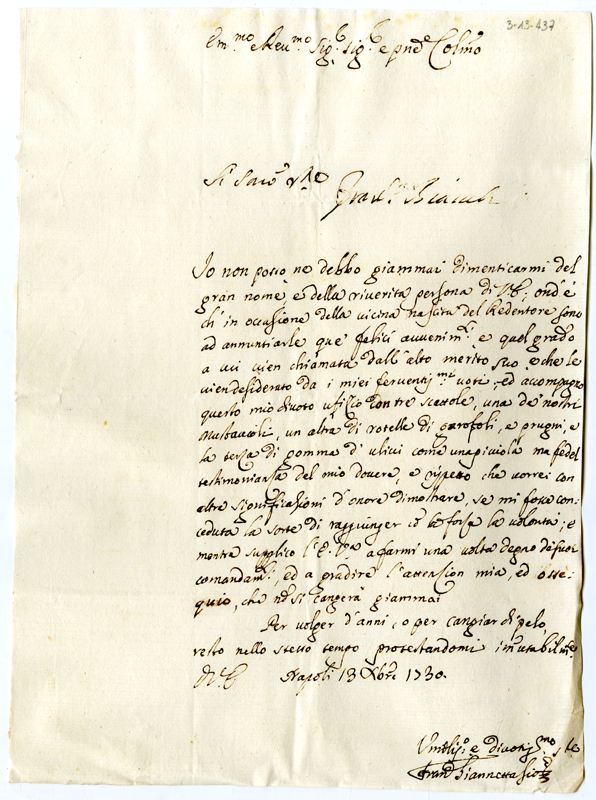 3-13-437
Em.mo e Reu.mo Sig.r sig.r e pnē Colmo
Io non posso ne debbo giammai dimenticarmi del
gran nome, e della riverita persona di V.E; ond'è
ch'in occasione della vicina nascita del Redentore sono
ad annuntiarle que felici avvenim.ti e quel grado
a cui vien chiamata dall'alto merito suo, e che le
vien desiderato da i miei ferventi.mi voti, ed accompagno
questo mio divoto ufizio con tre scattole, una de' nostri
Mustaccioli, un altra di rotelle di garofoli, e prugni, e
la terza di gomma d'ulivi come una picciola ma fedel
testimonianza del mio dovere, e rispetto che vorrei con
altre significazioni d'onore dimostrare, se mi fosse con:
ceduta la sorte di raggiunger cō le forze la volontà; e
mentre supplico l'E. V.ra a farmi una volta degno de suoi
comandam.ti, ed a gradire l'attension mia, ed osse:
quio, che nō si cangerà giammai
Per volger d'anni, o per cangiar di pelo,
resto nello stesso tempo protestandomi imutabilm.te
Di V.E Napoli 13 Xbre 1730.
Umiliss.o e divotiss.mo
Fran.co Giannettasio